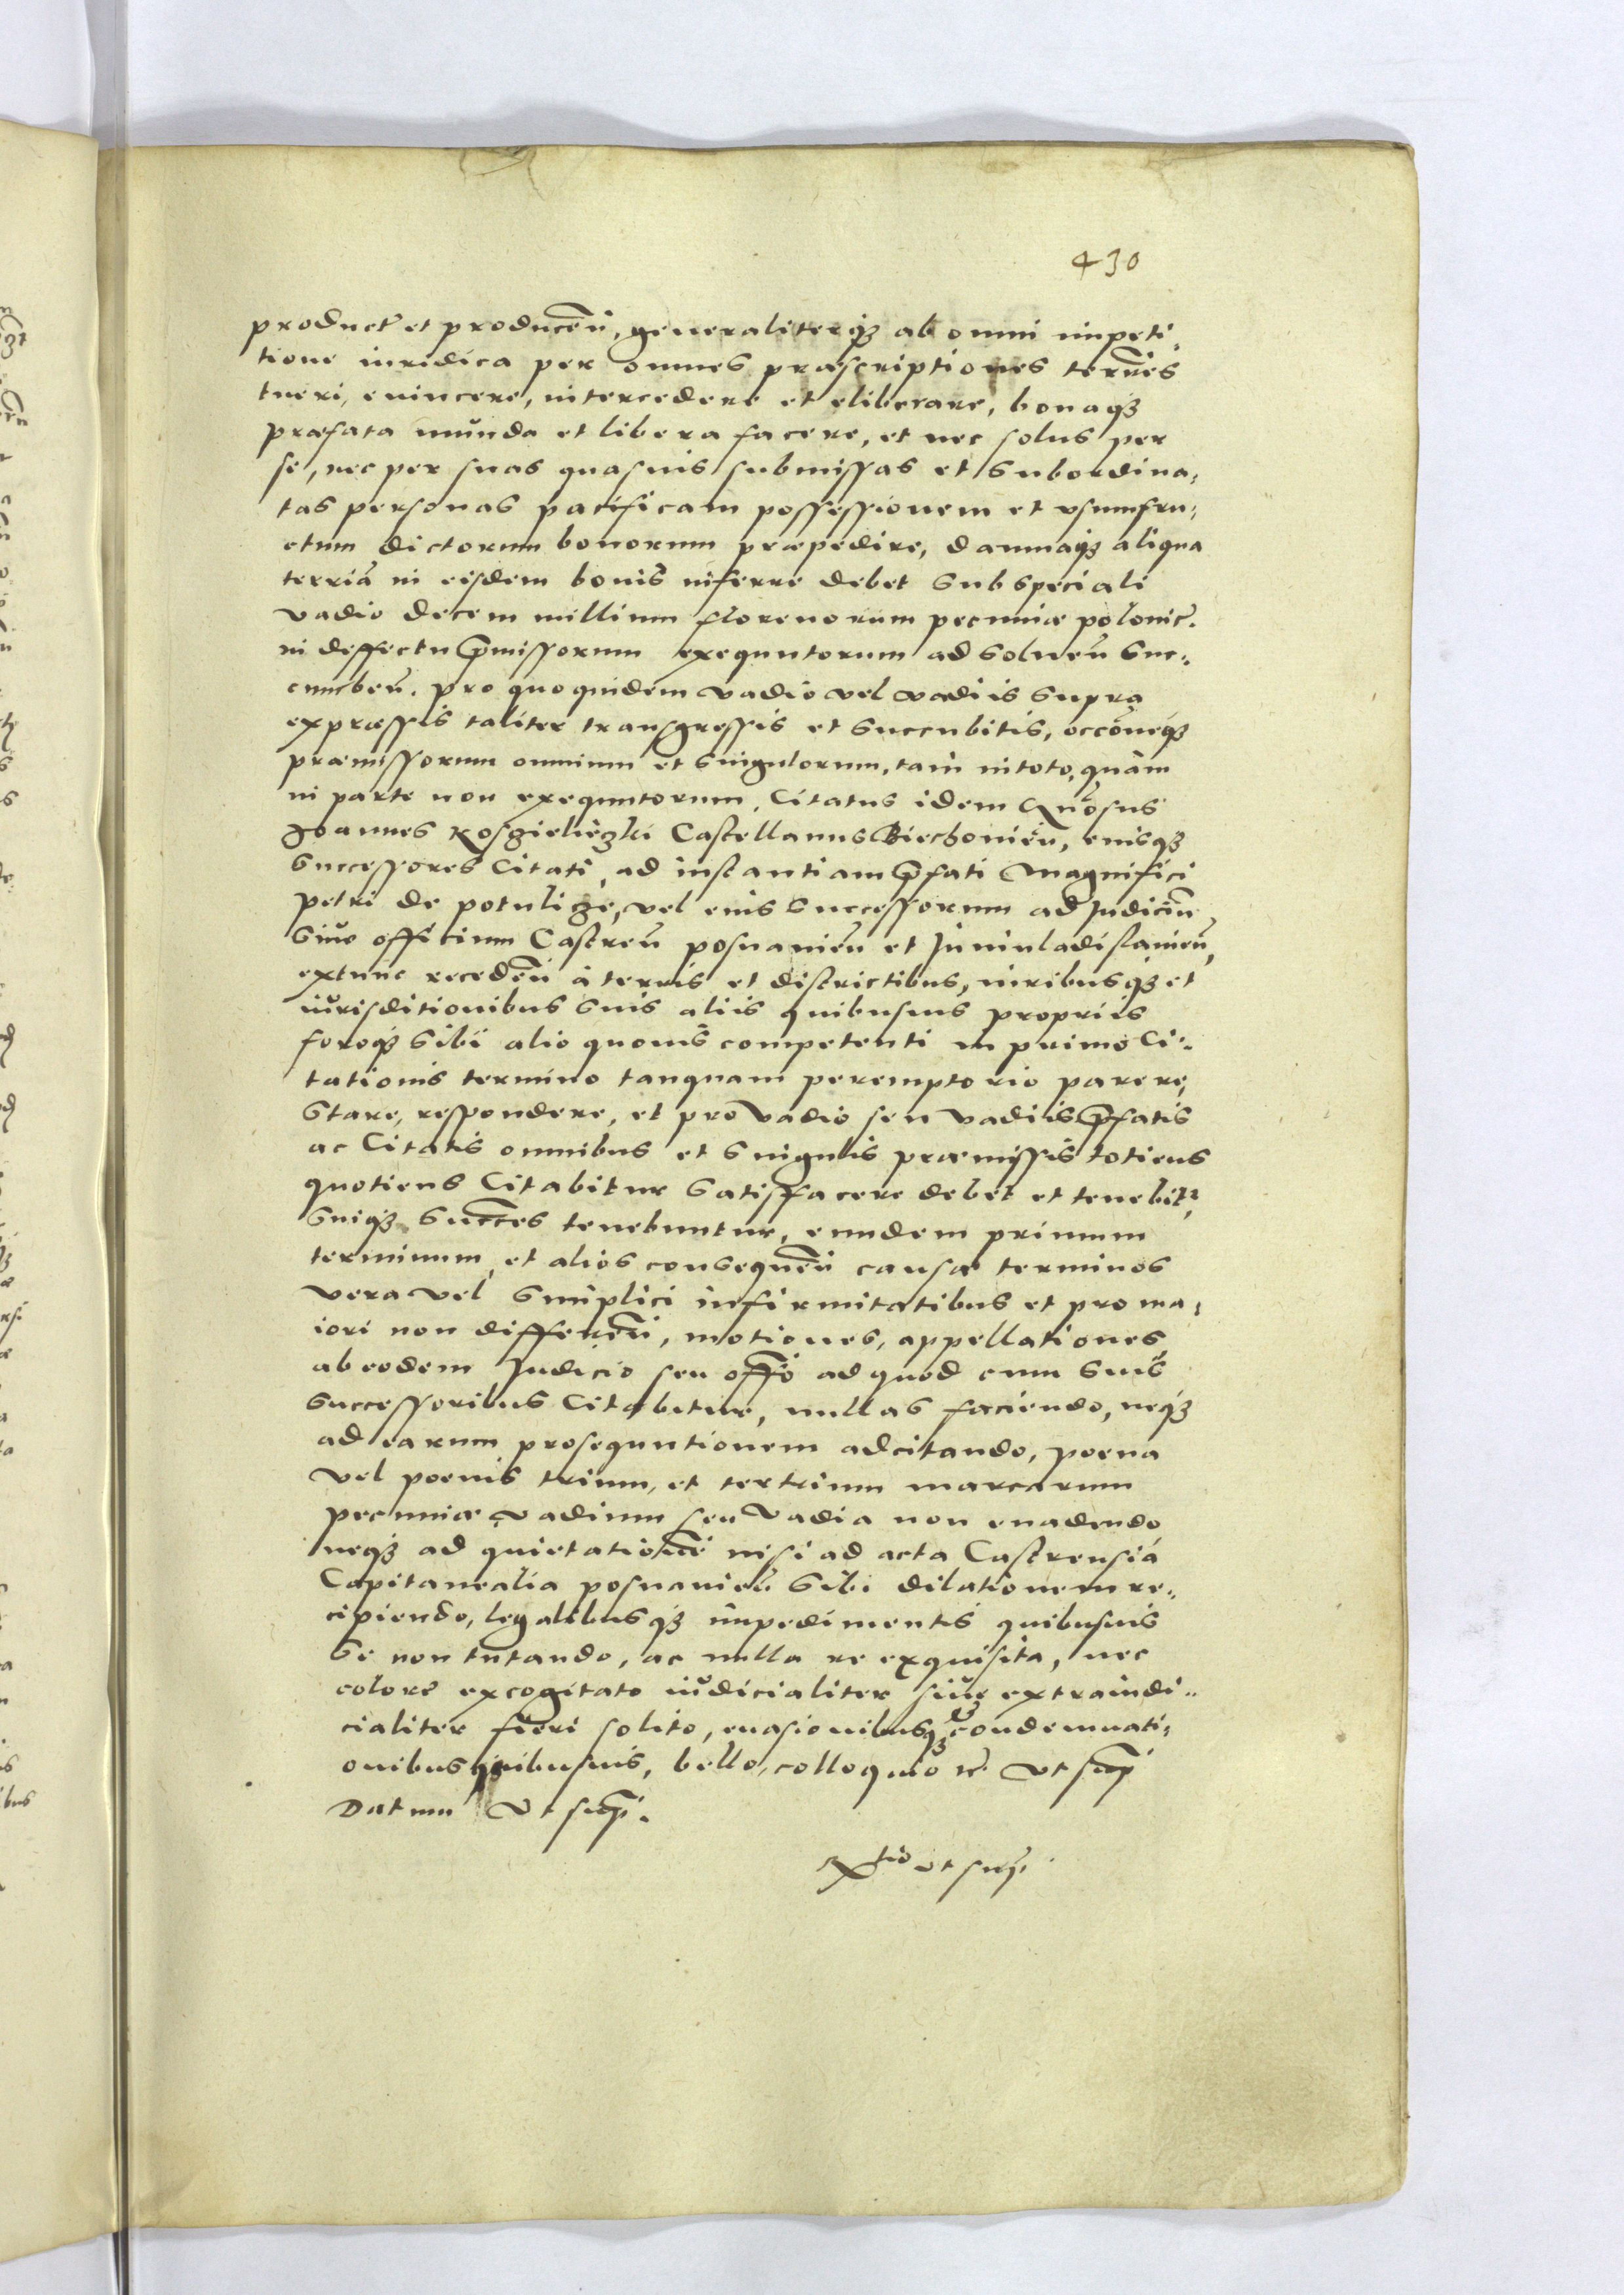 430
product̃ et producẽn, generaliterq3 ab omni impeti-
tione iuridica per omnes præscriptiones terrẽs
tueri, euincere, intercedere et eliberare, bonaq3
præfata munda et libera facere, et nec solus per
se, nec per suas quasuis submissas et subordina-
tas personas pacificam possessionem et vsumfru-
ctum dictorum bonorum præpedire, damnaq3 aliqua
terriã in eisdem bonis inferre debet sub speciali
vadio decem millium florenorum pecuniæ polonic̃.
in deffectu p̃missorum exequutorum ad soluen̄ suc-
cumben̄. pro quo quidem vadio vel vadiis supra
expressis taliter transgressis et succubitis, occõneq3
præmissorum omnium et singulorum, tam in toto, quàm
in parte non exequutorum, Citatus idem Gñosus
Joannes Rosgieliezki Castellanus Biechouien̄, eiusq3
successores Citati, ad instantiam p̃fati Magnifici
petri de potulicze, vel eius successorum ad Judiciũ
siue officium Castren̄ posnanien̄ et Juniuladislauien̄,
extunc receden̄ à terris et districtibus, iuribusq3 et
iurisditionibus suis aliis quibusuis propriis
foroq3 sibi alio quouis competenti in primo Ci-
tationis termino tanquam peremptorio parere,
stare, respondere, et pro vadio seu vadiis p̃fatis
ac Citatis omnibus et singulis præmissis totiens
quotiens Citabitur satisfacere debet et tenebitr,
suiq3 succes̃ tenebuntur, eundem primum
terminum, et alios consequen̄ causæ terminos
vera vel simplici infirmitatibus et pro ma-
iori non differen̄, motiones, appellationes
ab eodem Judicio seu offõ ad quod cum suis
successoribus Citabitur, nullas faciendo, neq3
ad earum prosequutionem adcitando, poena
vel poenis trium, et ter trium marcarum
pecuniæ vadium seu vadia non euadendo
neq3 ad quietationẽ nisi ad acta Castrensia
Capitanealia posnanien̄ sibi dilationem re-
cipiendo, legalibusq3 impedimentis quibusuis
se non tutando, ac nulla re exquisita, nec
colore excogitato iudicialiter siue extraiudi-
cialiter fieri solito, euasionibusq3 condemnati-
onibus quibusuis, bello, colloquio rc̃. vt sup̃
Datum vt sup̃.
Rtio vt sup̃.